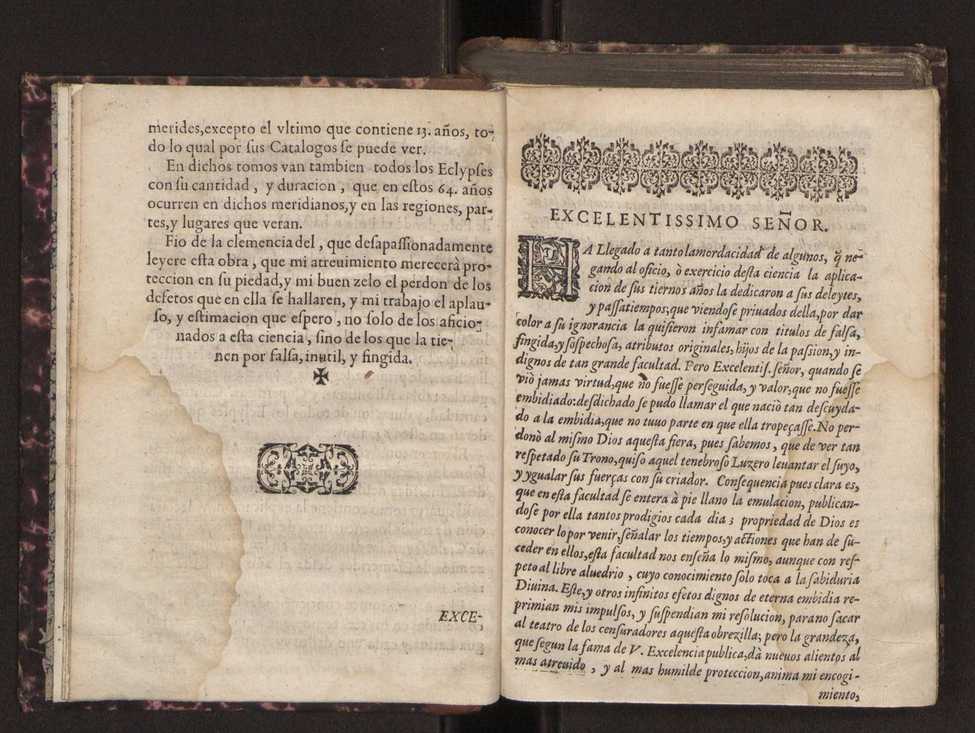 merides,excepto el vltimo que contiene 13. años, to-
do lo qual por sus Catalogos se puede ver.
En dichos tomos van tambien todos los Eclypses
con su cantidad, y duracion, que en estos 64. años
ocurren en dichos meridianos,y en las regiones, par-
tes,y lugares que veran.
Fio de la clemencia del, que desapassionadamente
leyere esta obra, que mi atreuimiento merecerà pro-
teccion en su piedad,y mi buen zelo el perdon de los
defetos que en ella se hallaren, y mi trabajo el aplau-
so, y estimacion que espero, no solo de los aficio-
nados a esta ciencia, sino de los que la tie-
nen por falsa, inutil, y fingida.
EXCE-
EXCELENTISSIMO SEÑOR.
HA Llegado a tanto la mordacidad de algunos, q̃ ne-
gando al oficio, ò exercicio desta ciencia la aplica-
cion de sus tiernos años la dedicaron a sus deleytes,
y passatiempos;que viendose priuados della,por dar
color a su ignorancia la quisieron infamar con titulos de falsa,
fingida,y sospechosa, atributos originales,hijos de la passion,y in-
dignos de tan grande facultad. Pero Excelentis. señor, quando se
viò jamas virtud,que no fuesse perseguida, y valor,que no fuesse
embidiado:desdichado se pudo llamar el que naciò tan descuyda-
do a la embidia,que no tuuo parte en que ella tropeçasse.No per-
donò al mismo Dios aquesta fiera, pues sabemos, que de ver tan
respetado su Trono,quiso aquel tenebroso Luzero leuantar el suyo,
y ygualar sus fuerças con su criador. Consequencia pues clara es,
que en esta facultad se entera à pie llano la emulacion, publican-
dose por ella tantos prodigios cada dia; propriedad de Dios es
conocer lo por venir,señalar los tiempos,y actiones que han de su-
ceder en ellos,esta facultad nos enseña lo mismo, aunque con res-
peto al libre aluedrio, cuyo conocimiento solo toca a la sabiduria
Diuina. Este,y otros infinitos efetos dignos de eterna embidia re-
primian mis impulsos, y suspendian mi resolucion, para no sacar
al teatro de los censuradores aquesta obrezilla; pero la grandeza,
que segun la fama de V. Excelencia publica,dà nueuos alientos al
mas atreuido, y al mas humilde proteccion,anima mi encogi-
miento,